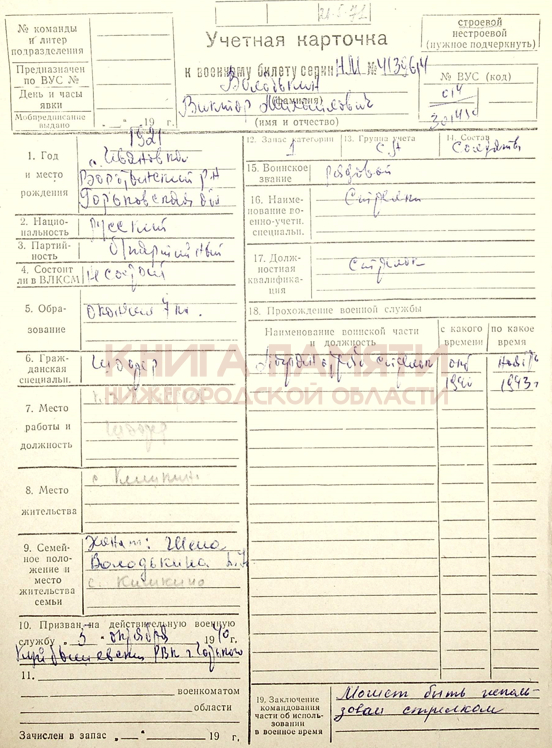 № команды
и литер
подразделения
Предназначен
по ВУС №
День и часы
явки
Мобпредписание
выдано . - . 19 г.
Учетная карточка
к военному билету серии НМ № 4139614
Володькин
(фамилия)
Виктор Михайлович
(имя и отчество)
строевой
нестроевой
(нужное подчеркнуть)
№ ВУС (код)
1. Год
и место
рождения
1921
с. Ивановка
Воротынский р-н
Горьковской обл
2. Нацио-
нальность
русский
3. Партий-
ность
б/партийный
4. Состоит
ли в ВЛКСМ
не состоит
5. Обра-
зование
окончил 7 кл.
6. Граж-
данская
специальн.
шофер
7. Место
работы и
должность
шофер
8. Место
жительства
9. Семей-
ное поло-
жение и
место
жительства
семьи
Женат: Жена
Володькина
с. Кишкино
10. Призван на действительную военную
службу . 5 . октября 1940 г.
Куйбышевским РВК г. Горького
11.
военкоматом
области
Зачислен в запас . — . 19 г.
12. Запас категории
1
13. Группа учета
С.А
14. Состав
Солдаты
15. Воинское
звание
рядовой
16. Наиме-
нование во-
енно-учетн.
специальн.
Стрелки
17. Долж-
ностная
квалифика-
ция
Стрелок
18. Прохождение военной службы
Наименование воинской части
и должность
с какого
времени
по какое
время
стрелок
окт
1940
1943г
19. Заключение
командования
части об исполь-
зовании
в военное время
Может быть исполь-
зован стрелком
КНИГА ПАМЯТИ
НИЖЕГОРОДСКОЙ ОБЛАСТИ